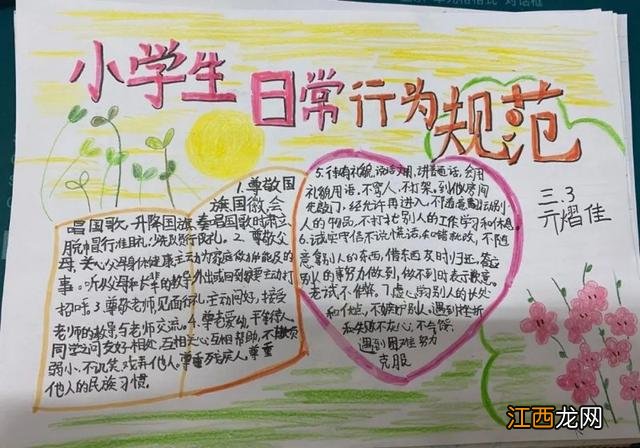 小学生日常行为规范
三.3
亓熠佳
1.尊敬国
旗国徽会
唱国歌升降国旗奏唱国歌时肃立
脱帽行准目礼少先队员行队礼。2.尊敬父
母,关心父母身体健康主动为家庭做力所能及的
事。听从父母和长辈的教导外出或回到家要主动打
招呼。3.尊敬老师见面行礼主动问好,接受
老师的教导与老师交流。4.尊老爱幼,平等待人。
同学之间友好相处互相关心互相帮助,不欺负
弱小,不讥笑、戏弄他人。尊重残疾人。尊重
他人的民族习惯.
5.待有礼貌,说话文明,讲普通话,会用
礼貌用语。不骂人,不打架。到他房间
先敲门,经允许再进入,不随意翻动别
人的物品,不打扰别人的工作学习和休息。
6.诚实守信不说慌话知错就改,不随
意拿别人的东西,借东西及时归还,答应
别人的事努力做到,做不到时表示歉意。
考试不作弊。7.虚心学习别人的长处
和优点,不嫉妒别人。遇到挫折
和失败不灰心,不气馁,
遇到困难努力
克服
江西龙网